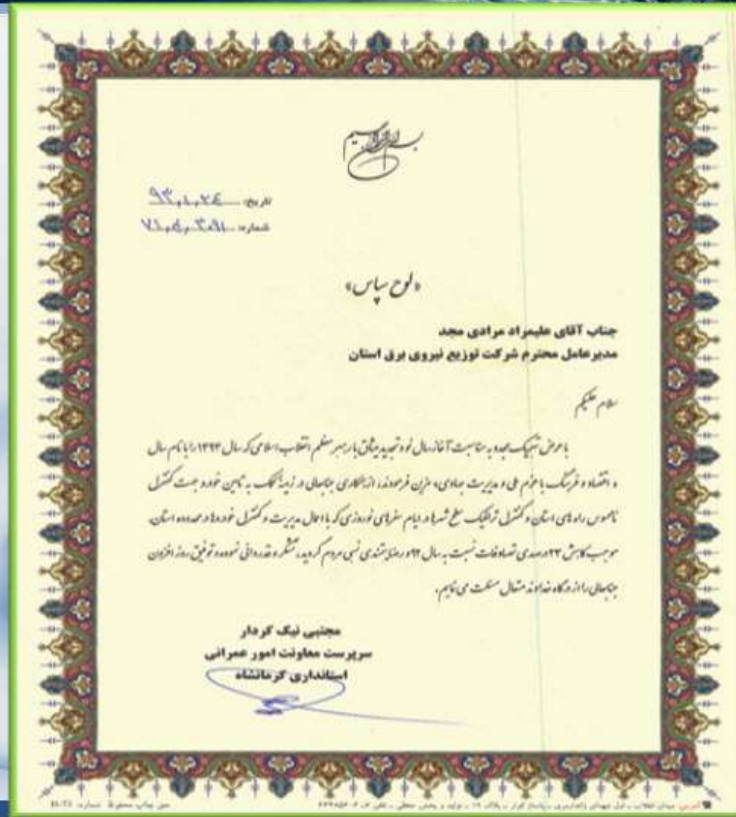 بسم الله الرحمن الرحیم
تاریخ: ۹۳،۱،۲۴
شماره:
«لوح سپاس»
جناب آقای علیمراد مرادی مجد
مدیرعامل محترم شرکت توزیع نیروی برق استان
سلام علیکم
با عرض تبریک مجدد به مناسبت آغاز سال نو و تجدید میثاق با رهبر معظم انقلاب اسلامی که سال ۱۳۹۳ را با نام سال
« اقتصاد و فرهنگ با عزم ملی و مدیریت جهادی » مزین فرمودند، از همکاری جنابعالی در زمینه کمک به تامین خودرو جهت کنترل
نامحسوس راه های استان و کنترل ترافیک سطح شهرها در ایام سفرهای نوروزی که با اعمال مدیریت و کنترل خودروها در محدوده استان
موجب کاهش ۲۳ درصدی تصادفات نسبت به سال ۹۲ و رضایتمندی نسبی مردم گردید، تشکر و قدردانی نموده و توفیق روز افزون
جنابعالی را از درگاه خداوند متعال مسئلت می نمایم.
مجتبی نیک کردار
سرپرست معاونت امور عمرانی
استانداری کرمانشاه